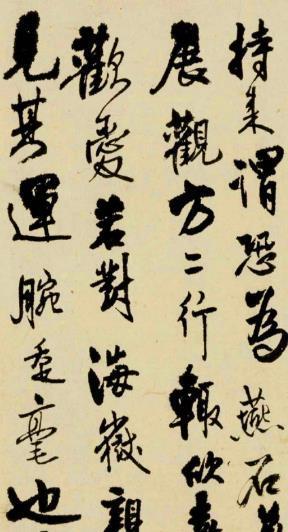 持来谓恐為燕石
展觀方二行輒欣
歡愛若對海嶽親
見其運腕垂毫也